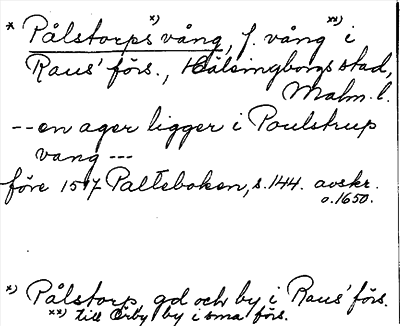 * Pålstorps *) vång, f. vång **) i
Raus' förs., Hälsingborgs stad,
Malm. l.
-- en ager ligger i Poulstrup
vang ---
före 1517 Palteboken, s. 144. avskr.
o. 1650.
*) Pålstorp, gd och by i Raus' förs.
**) till Örby by i sma förs.